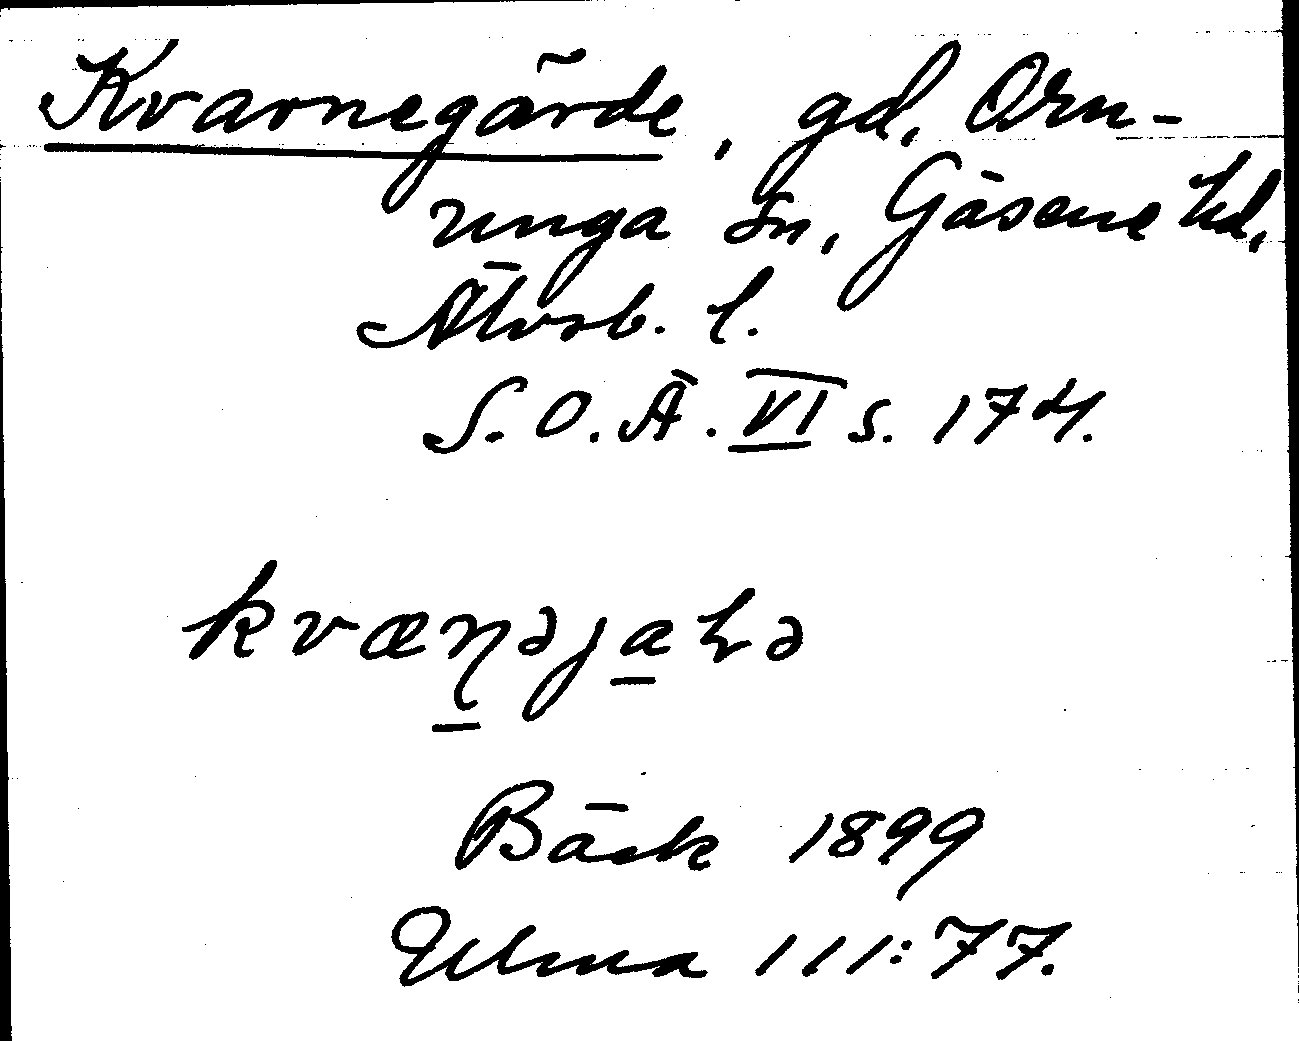 Kvarnegärde, gd, Orn-
unga sn, Gäsene hd,
Älvsb. l.
S.O.Ä. VI s. 174.
kvæɳəjaɽə
Bäck 1899
Ulma 111:77.